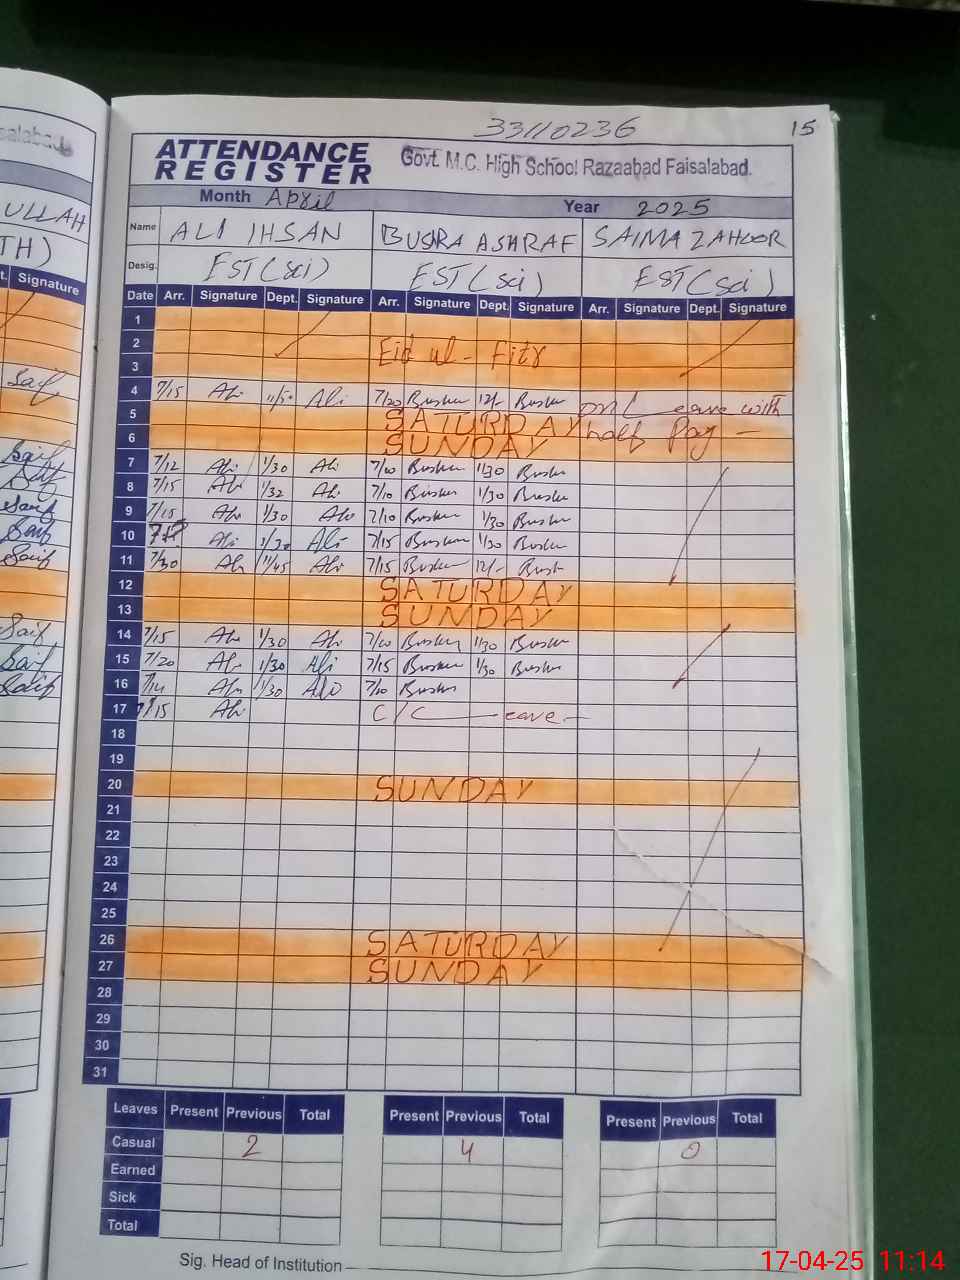 33110236 15
ATTENDANCE
REGISTER
Govt. M.C. High School Razaabad Faisalabad.
Month April Year 2025
ULLAH
Name ALI IHSAN BUSHRA ASHRAF SAIMA ZAHOOR
TH)
Desig. EST (sci) EST (sci) EST (sci)
t. Signature
Date Arr. Signature Dept. Signature Arr. Signature Dept. Signature Arr. Signature Dept. Signature
1
2 Eid ul - Fitr
3
Saif
4 7/15 Ali Ali 7/20 Bushra 12/- Bushra on Leave with
5 SATURDAY half Pay -
6 SUNDAY
Saif
7 7/12 Ali 1/30 Ali 7/10 Bushra 1/30 Bushra
8 7/15 Ali 1/32 Ali 7/10 Bushra 1/30 Bushra
Saif
9 7/15 Ali 1/30 Ali 7/10 Bushra 1/30 Bushra
Saif
10 Ali 1/30 Ali 7/15 Bushra 1/30 Bushra
Saif
11 7/30 Ali 11/45 Ali 7/15 Bushra 12/- Bush
12 SATURDAY
13 SUNDAY
Saif
14 7/15 Ali 1/30 Ali 7/10 Bushra 1/30 Bushra
Saif
15 7/20 Ali 1/30 Ali 7/15 Bushra 1/30 Bushra
Saif
16 7/14 Ali 1/30 Ali 7/10 Bushra
17 7/15 Ali C/C Leave -
18
19
20 SUNDAY
21
22
23
24
25
26 SATURDAY
27 SUNDAY
28
29
30
31
Leaves Present Previous Total Present Previous Total Present Previous Total
Casual 2 4 0
Earned
Sick
Total
Sig. Head of Institution
17-04-25 11:14